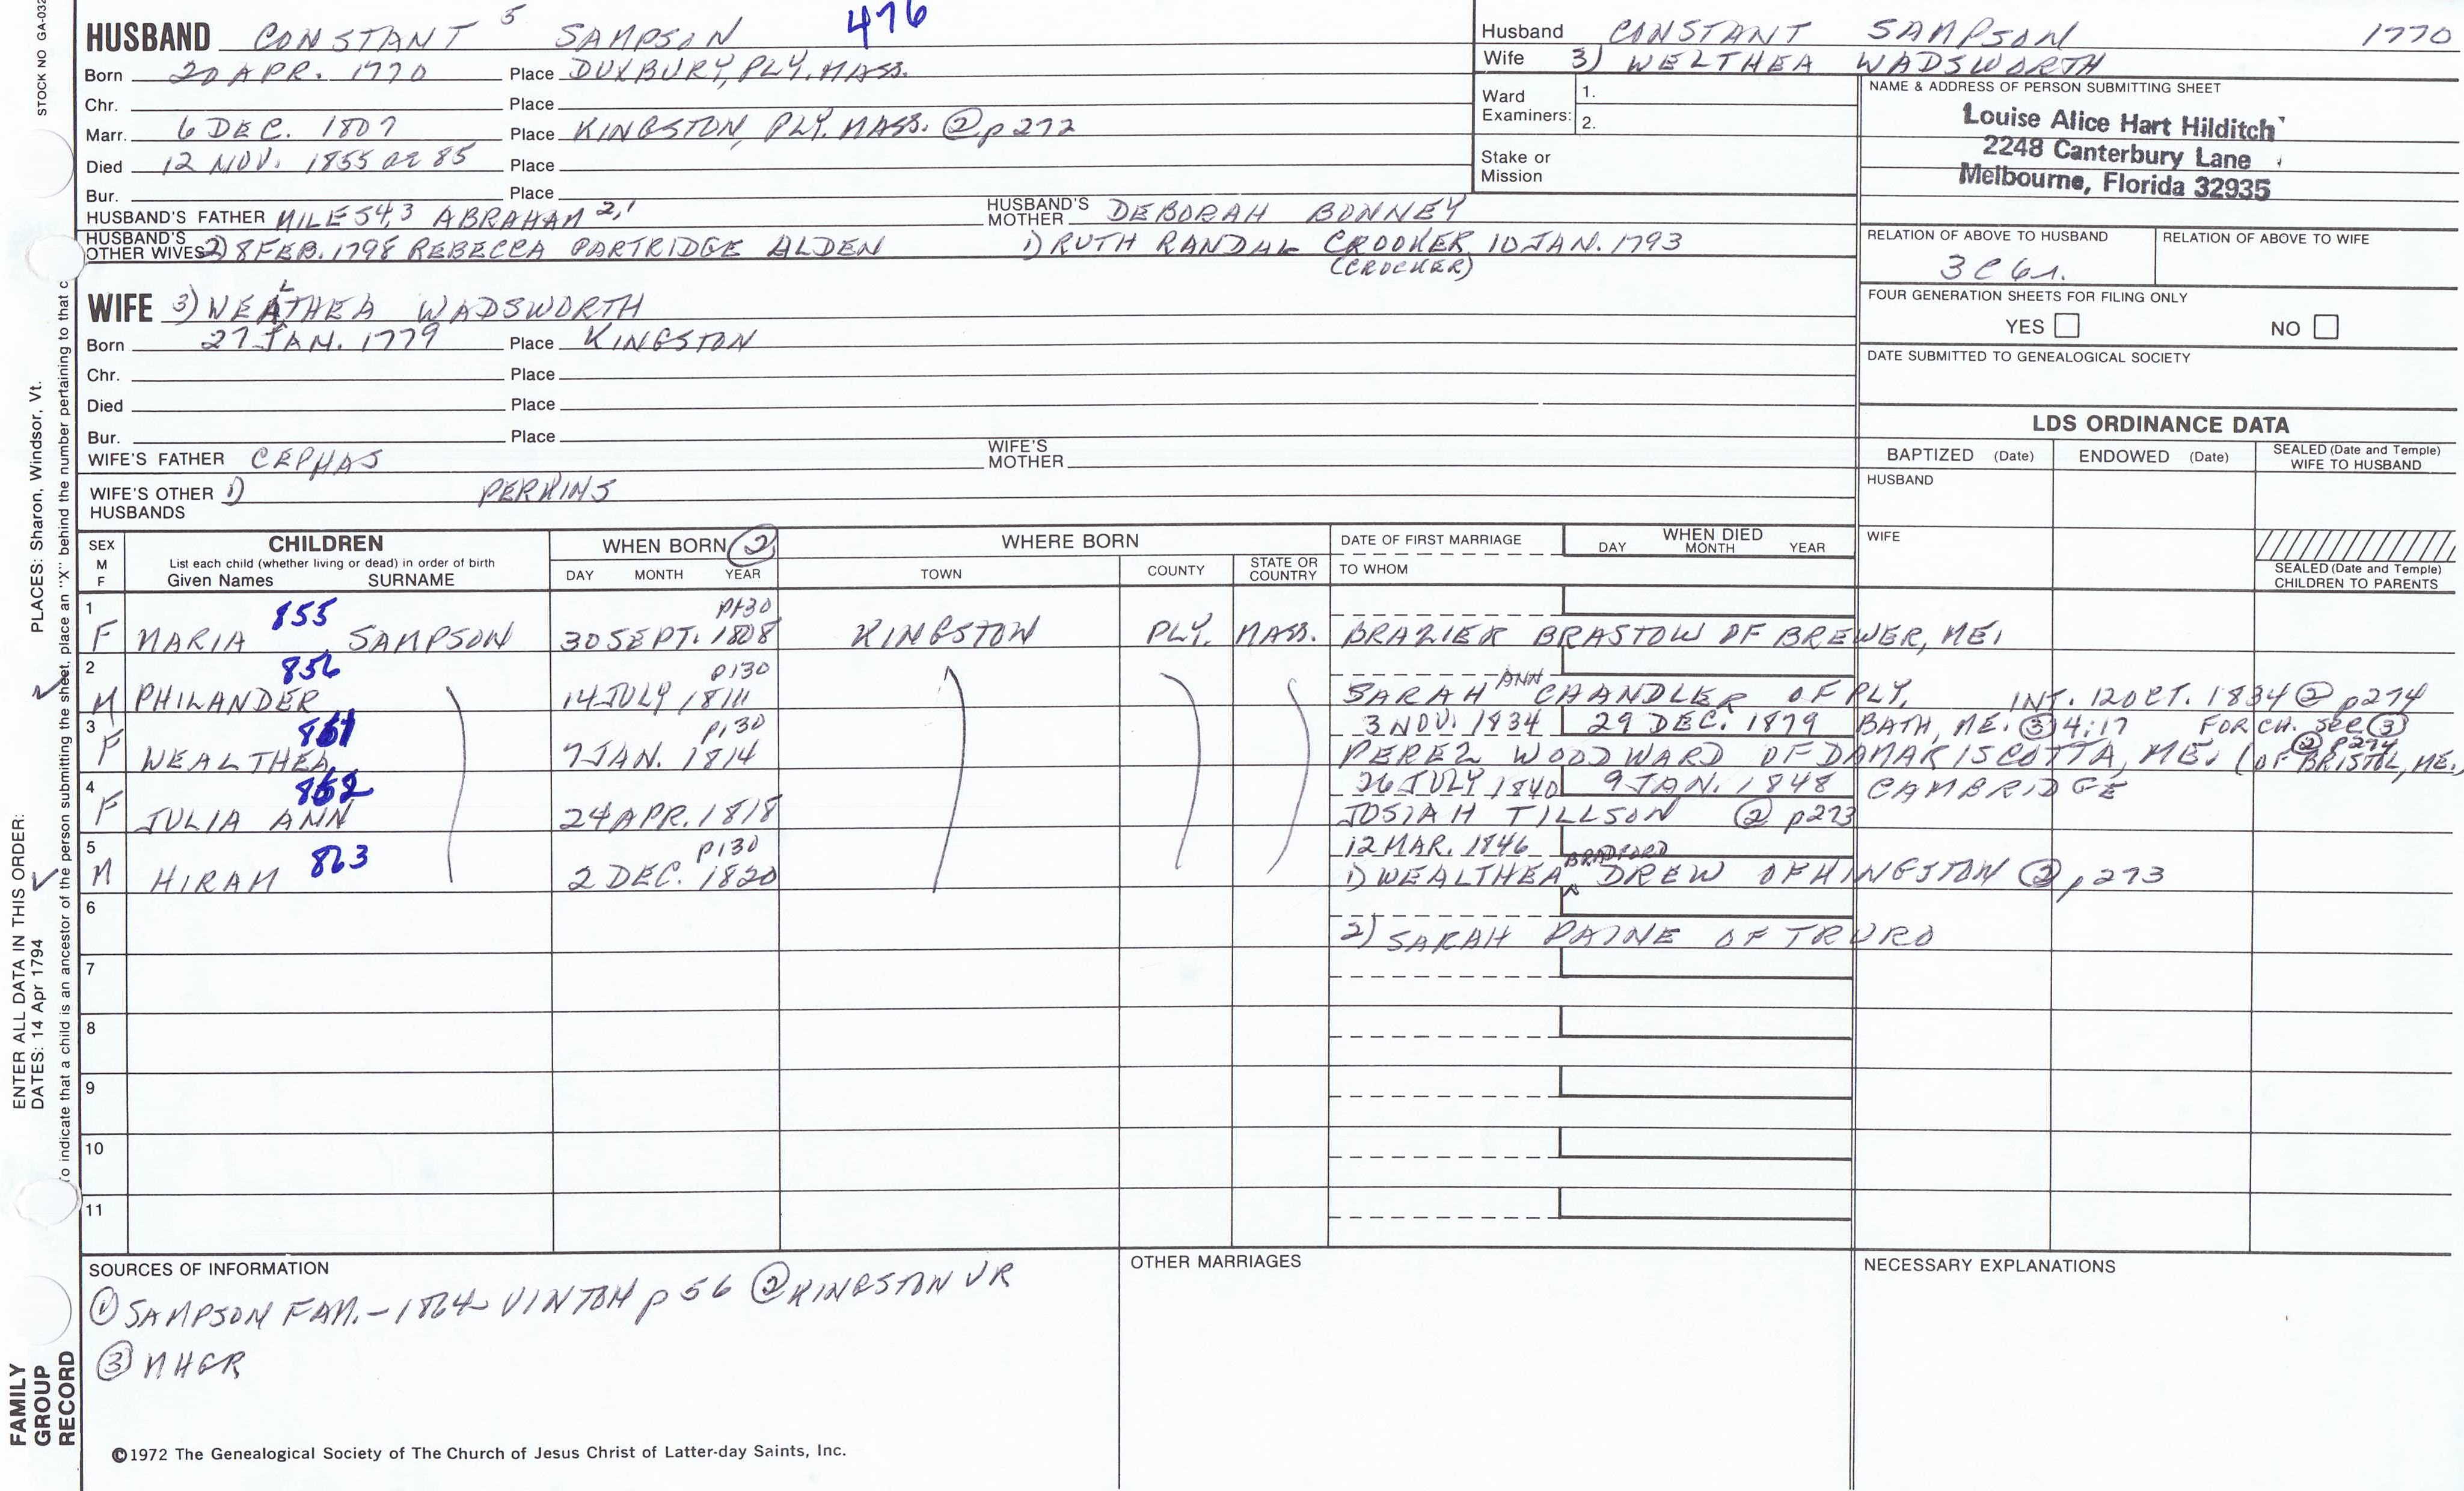 STOCK NO GA-032
HUSBAND CONSTANT 5 SAMPSON 476
Born 20 APR. 1770 Place DUXBURY, PLY. MASS.
Chr. Place
Marr. 6 DEC. 1807 Place KINGSTON, PLY. MASS. ② p 272
Died 12 NOV. 1855 OR 85 Place
Bur. Place
HUSBAND'S FATHER MILES 4,3 ABRAHAM 2,1 HUSBAND'S MOTHER DEBORAH BONNEY
HUSBAND'S OTHER WIVES 2) 8 FEB. 1798 REBECCA PARTRIDGE ALDEN 1) RUTH RANDAL CROOKER 10 JAN. 1793
(CROCKER)
Husband CONSTANT SAMPSON 1770
Wife 3) WELTHEA WADSWORTH
Ward Examiners: 1.
2.
Stake or Mission
NAME & ADDRESS OF PERSON SUBMITTING SHEET
Louise Alice Hart Hilditch
2248 Canterbury Lane
Melbourne, Florida 32935
RELATION OF ABOVE TO HUSBAND RELATION OF ABOVE TO WIFE
3C6r.
FOUR GENERATION SHEETS FOR FILING ONLY
YES NO
DATE SUBMITTED TO GENEALOGICAL SOCIETY
WIFE 3) WEALTHEA WADSWORTH
Born 27 JAN. 1779 Place KINGSTON
Chr. Place
Died Place
Bur. Place
WIFE'S FATHER CEPHAS WIFE'S MOTHER
WIFE'S OTHER HUSBANDS 1) PERKINS
LDS ORDINANCE DATA
BAPTIZED (Date) ENDOWED (Date) SEALED (Date and Temple) WIFE TO HUSBAND
HUSBAND
WIFE
SEALED (Date and Temple) CHILDREN TO PARENTS
SEX M F CHILDREN
List each child (whether living or dead) in order of birth
Given Names SURNAME
WHEN BORN ②
DAY MONTH YEAR
WHERE BORN
TOWN COUNTY STATE OR COUNTRY
DATE OF FIRST MARRIAGE
TO WHOM
WHEN DIED
DAY MONTH YEAR
1 855 p130
F MARIA SAMPSON 30 SEPT. 1808 KINGSTON PLY. MASS. BRAZIER BRASTOW OF BREWER, ME.
2 856 p130
M PHILANDER 14 JULY 1811 SARAH ANN CHANDLER OF PLY. INT. 12 OCT. 1834 ② p274
3 861 p130 3 NOV. 1834 29 DEC. 1879 BATH, ME. ③ 4:17 FOR CH. SEE ③
F WEALTHEA 7 JAN. 1814 PEREZ WOODWARD OF DAMARISCOTTA, ME. (OF BRISTOL, ME. ② p274
4 862 26 JULY 1840 9 JAN. 1848 CAMBRIDGE
F JULIA ANN 24 APR. 1818 JOSIAH TILLSON ② p273
5 863 p130 12 MAR. 1846
M HIRAM 2 DEC. 1820 1) WEALTHEA BRADFORD DREW OF KINGSTON ② p273
6 2) SARAH PAINE OF TRURO
7
8
9
10
11
SOURCES OF INFORMATION
① SAMPSON FAM. - 1864 VINTON p 56 ② KINGSTON VR
③ MHGR
OTHER MARRIAGES
NECESSARY EXPLANATIONS
©1972 The Genealogical Society of The Church of Jesus Christ of Latter-day Saints, Inc.
FAMILY GROUP RECORD
ENTER ALL DATA IN THIS ORDER:
DATES: 14 Apr 1794
PLACES: Sharon, Windsor, Vt.
To indicate that a child is an ancestor of the person submitting the sheet, place an "X" behind the number pertaining to that c